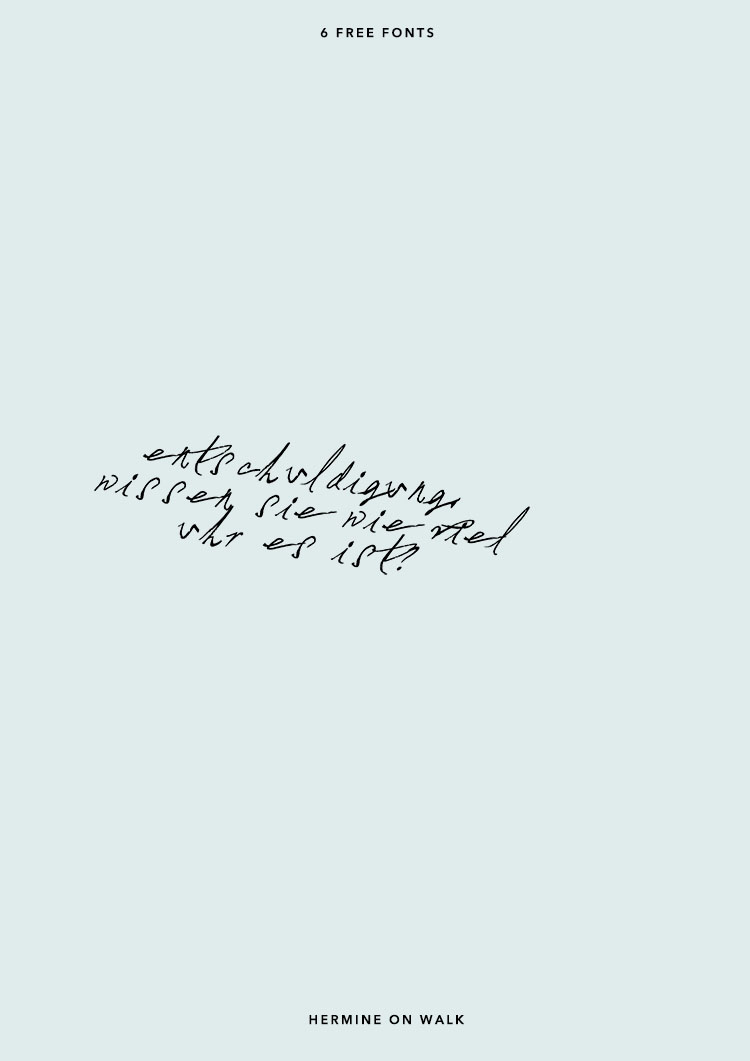 6 FREE FONTS
entschuldigung,
wissen sie wie viel
uhr es ist?
HERMINE ON WALK